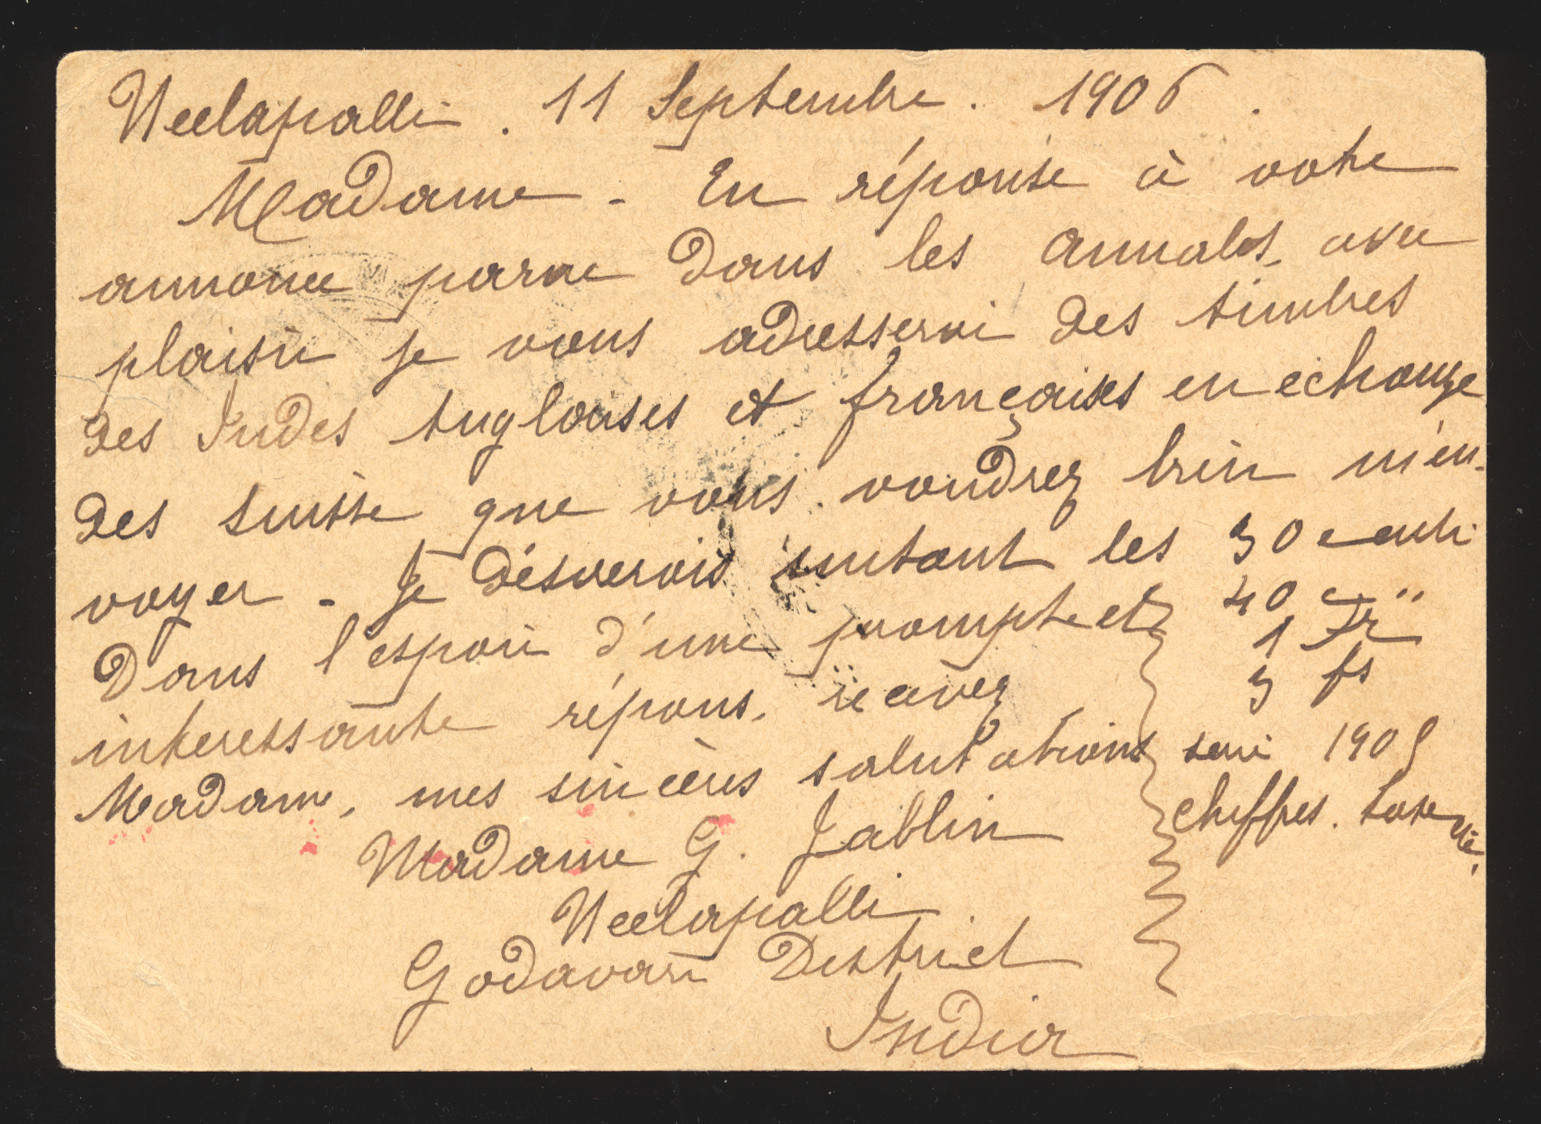 Neelapalli. 11 Septembre. 1906.
Madame - En réponse à votre
annonce parue dans les Annales, avec
plaisir je vous adresserai des timbres
des Indes Anglaises et françaises en échange
des suisse que vous voudrez bien m'en-
voyer - Je désirerais surtout les 30 centi
40 c
Dans l'espoir d'une prompte et
1 Fr
interessante répons, recevez
3 fs
Madame, mes sincères salutations
serie 1905
chiffres. taxe
Madame G. Jablin
Neelapalli
Godavari District
India